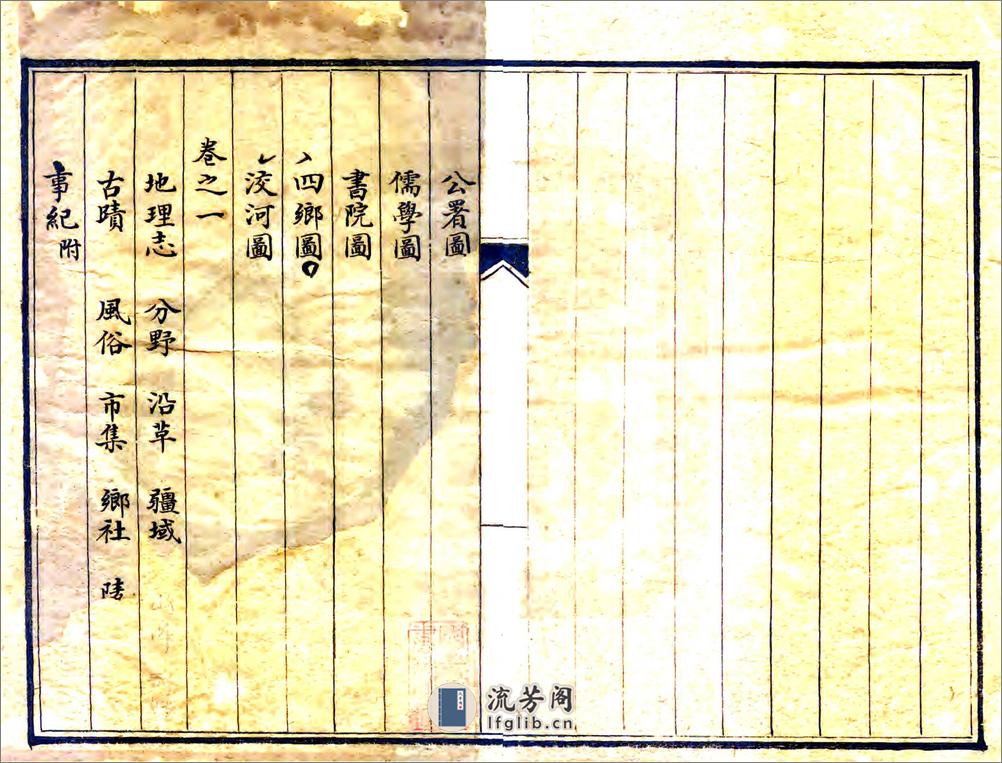 公署圖
儒學圖
書院圖
四鄉圖
洨河圖
卷之一
地理志 分野 沿革 疆域
古蹟 風俗 市集 鄉社
事紀附
流芳阁
lfglib.cn